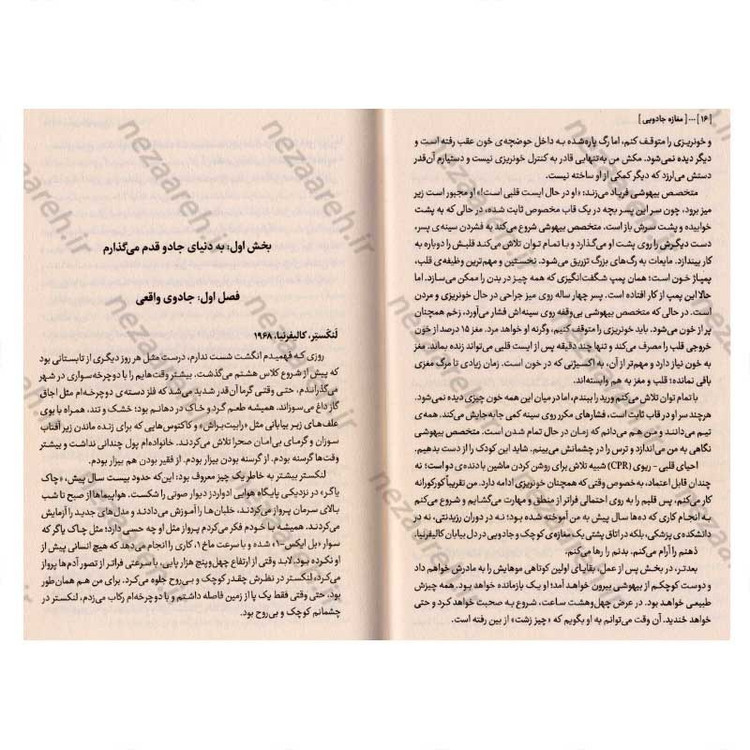 [ ۱۶ ] --- [ مغازه جادویی ]
و خونریزی را متوقف کنم، اما رگ پاره‌شده به داخل حوضچه‌ی خون عقب رفته است و
دیگر دیده نمی‌شود. مکش من به‌تنهایی قادر به کنترل خونریزی نیست و دستیارم آن‌قدر
دستش می‌لرزد که دیگر کمکی از او ساخته نیست.
متخصص بیهوشی فریاد می‌زند: «او در حال ایست قلبی است!» او مجبور است زیر
میز برود، چون سر این پسر بچه در یک قاب مخصوص ثابت شده، در حالی که به پشت
خوابیده و پشت سرش باز است. متخصص بیهوشی شروع می‌کند به فشردن سینه‌ی پسر،
دست دیگرش را روی پشت او می‌گذارد و با تمام توان تلاش می‌کند قلبش را دوباره به
کار بیندازد. مایعات به رگ‌های بزرگ تزریق می‌شود. نخستین و مهم‌ترین وظیفه‌ی قلب،
پمپاژ خون است؛ همان پمپ شگفت‌انگیزی که همه چیز در بدن را ممکن می‌سازد. اما
حالا این پمپ از کار افتاده است. پسر چهار ساله روی میز جراحی در حال خونریزی و مردن
است. در حالی که متخصص بیهوشی بی‌وقفه روی سینه‌اش فشار می‌آورد، زخم همچنان
پر از خون می‌شود. باید خونریزی را متوقف کنیم، وگرنه او خواهد مرد. مغز ۱۵ درصد از خون
خروجی قلب را مصرف می‌کند و تنها چند دقیقه پس از ایست قلبی می‌تواند زنده بماند.
به خون نیاز دارد و مهم‌تر از آن، به اکسیژنی که در خون است. زمان زیادی تا مرگ مغزی
باقی نمانده؛ قلب و مغز به هم وابسته‌اند.
با تمام توان تلاش می‌کنم ورید را ببندم، اما در میان این همه خون چیزی دیده نمی‌شود.
هرچند سر او در قاب ثابت است، فشارهای مکرر روی سینه کمی جابه‌جایش می‌کند. همه‌ی
تیم می‌دانند و من هم می‌دانم که زمان در حال تمام شدن است. متخصص بیهوشی
نگاهی به من می‌اندازد و ترس را در چشمانش می‌بینم. شاید این کودک را از دست بدهیم.
احیای قلبی - ریوی (CPR) شبیه تلاش برای روشن کردن ماشین با دنده‌ی دو است؛ نه
چندان قابل اعتماد، به‌خصوص وقتی که همچنان خونریزی ادامه دارد. من تقریباً کورکورانه
کار می‌کنم، پس قلبم را به روی احتمالی فراتر از منطق و مهارت می‌گشایم و شروع می‌کنم
به انجام کاری که ده‌ها سال پیش به من آموخته شده بود؛ نه در دوران رزیدنتی، نه در
دانشکده‌ی پزشکی، بلکه در اتاق پشتی یک مغازه‌ی کوچک و جادویی در دل بیابان کالیفرنیا.
ذهنم را آرام می‌کنم. بدنم را رها می‌کنم.
بعدتر، در بخش پس از عمل، بقایای اولین کوتاهی موهایش را به مادرش خواهم داد
و دوست کوچکم از بیهوشی بیرون خواهد آمد؛ او یک بازمانده خواهد بود. همه چیزش
طبیعی خواهد بود. در عرض چهل‌وهشت ساعت، شروع به صحبت خواهد کرد و حتی
خواهد خندید. آن وقت می‌توانم به او بگویم که «چیز زشت» از بین رفته است.
بخش اول: به دنیای جادو قدم می‌گذارم
فصل اول: جادوی واقعی
لَنکستِر، کالیفرنیا، ۱۹۶۸
روزی که فهمیدم انگشت شست ندارم، درست مثل هر روز دیگری از تابستانی بود
که پیش از شروع کلاس هشتم می‌گذشت. بیشتر وقت‌هایم را با دوچرخه‌سواری در شهر
می‌گذراندم، حتی وقتی گرما آن‌قدر شدید می‌شد که فلز دسته‌ی دوچرخه‌ام مثل اجاق
گاز داغ می‌سوزاند. همیشه طعم گرد و خاک در دهانم بود؛ خشک و تند، همراه با بوی
علف‌های زیر بیابانی مثل «رابیت‌براش» و کاکتوس‌هایی که برای زنده ماندن زیر آفتاب
سوزان و گرمای بی‌امان صحرا تلاش می‌کردند. خانواده‌ام پول چندانی نداشت و بیشتر
وقت‌ها گرسنه بودم. از گرسنه بودن بیزار بودم. از فقیر بودن هم بیزار بودم.
لنکستر بیشتر به خاطر یک چیز معروف بود: این‌که حدود بیست سال پیش، «چاک
یاگر» در نزدیکی پایگاه هوایی ادواردز دیوار صوتی را شکست. هواپیماها از صبح تا شب
بالای سرمان پرواز می‌کردند، خلبان‌ها را آموزش می‌دادند و مدل‌های جدید را آزمایش
می‌کردند. همیشه با خودم فکر می‌کردم پرواز مثل او چه حسی دارد؛ مثل چاک یاگر که
سوار «بل ایکس-۱» شده و با سرعت ماخ ۱، کاری را انجام می‌دهد که هیچ انسانی پیش از
او نکرده بود. لابد وقتی از ارتفاع چهل‌وپنج هزار پایی، با سرعتی فراتر از تصور آدم‌ها پرواز
می‌کرد، لنکستر در نظرش چقدر کوچک و بی‌روح جلوه می‌کرد. برای من هم همان‌طور
بود. حتی وقتی فقط یک پا از زمین فاصله داشتم و با دوچرخه‌ام رکاب می‌زدم، لنکستر در
چشمانم کوچک و بی‌روح بود.
nezaareh.ir